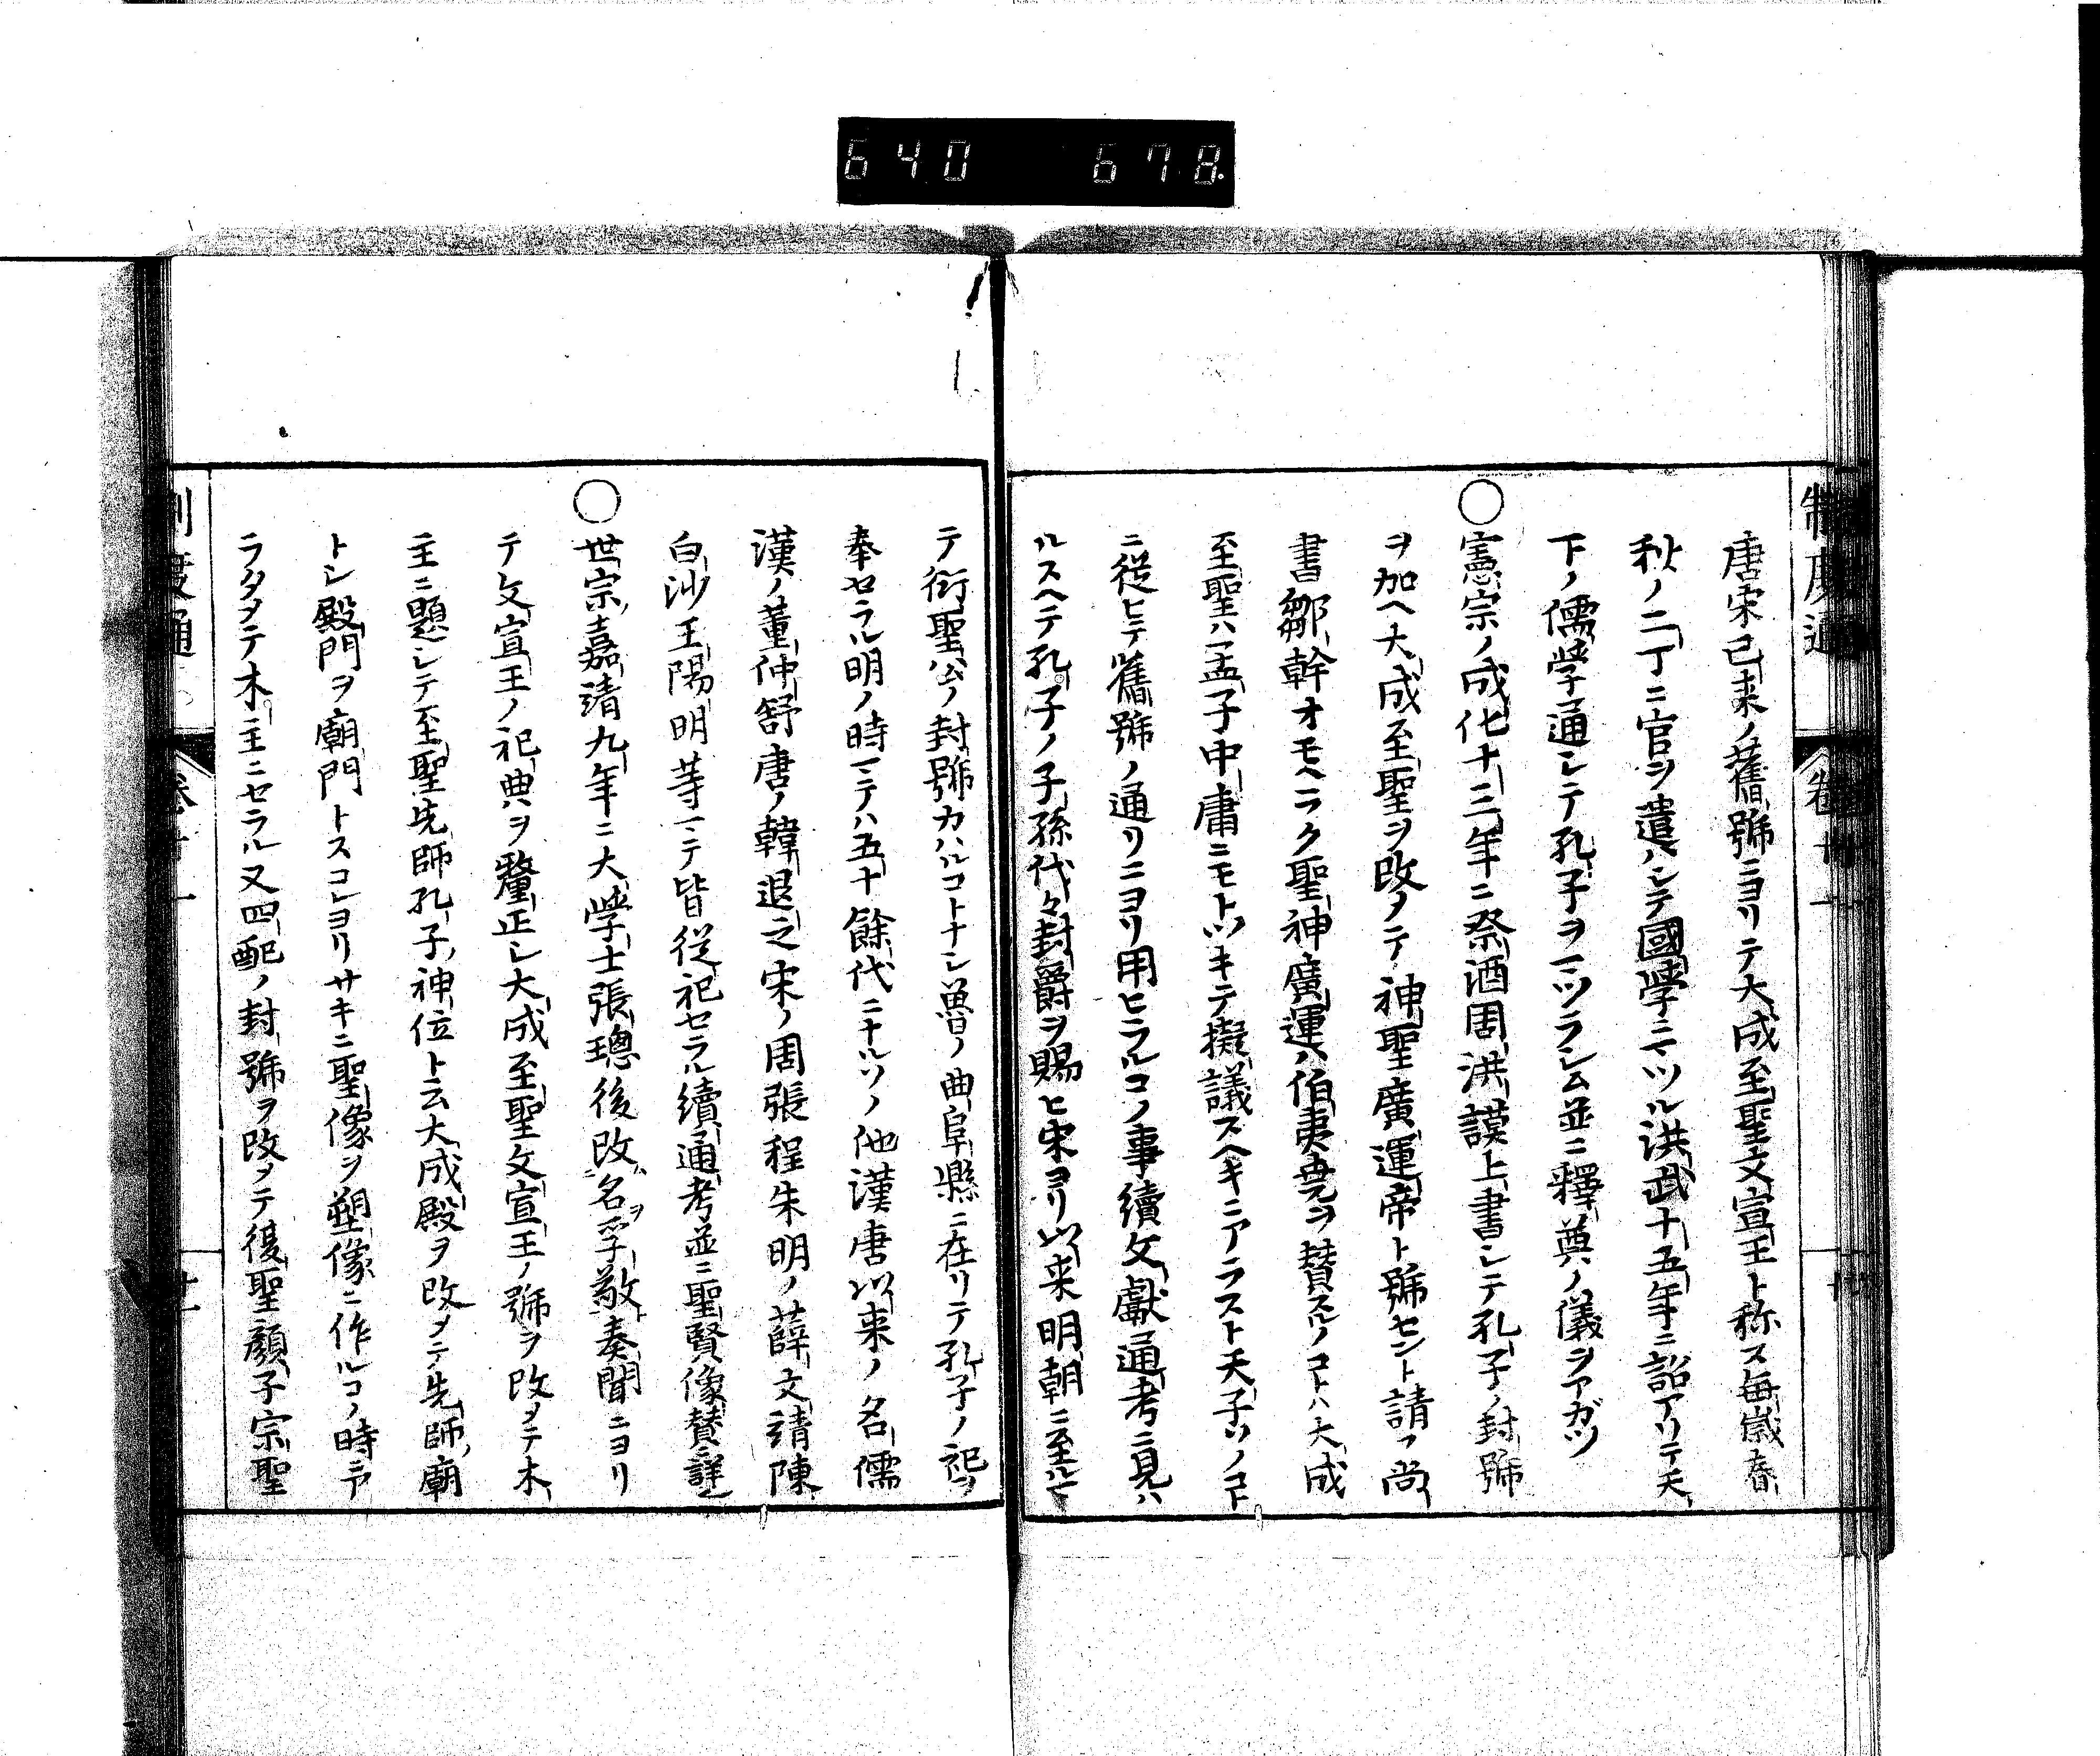 640 678.
制度通
卷十一
唐宋已来ノ舊號ニヨリテ大成至聖文宣王ト称ス毎歳春
秋ノ二丁ニ官ヲ遣ハシテ國学ニマツル洪武十五年ニ詔アリテ天
下ノ儒学通シテ孔子ヲマツラシム並ニ釋奠ノ儀ヲアガツ
○憲宗ノ成化十三年ニ祭酒周洪謨上書シテ孔子ノ封號
ヲ加ヘ大成至聖ヲ改メテ神聖廣運帝ト號セント請フ尚
書鄒幹オモヘラク聖神廣運ハ伯夷尭ヲ賛スルノコトハ大成
至聖ハ孟子中庸ニモトツキテ擬議スヘキニアラスト天子ソノコト
ニ從ヒテ舊號ノ通リニヨリ用ヒラルコノ事續文獻通考ニ見ハ
ルスヘテ孔子ノ子孫代々封爵ヲ賜ヒ宋ヨリ以来明朝ニ至ルマ
テ衍聖公ノ封號カハルコトナシ魯ノ曲阜縣ニ在リテ孔子ノ祀ヲ
奉セラル明ノ時マテハ五十餘代ニナルソノ他漢唐以来ノ名儒
漢ノ董仲舒唐ノ韓退之宋ノ周張程朱明ノ薛文靖陳
白沙王陽明等マテ皆從祀セラル續通考並ニ聖賢像賛ニ詳
○世宗嘉靖九年ニ大学士張璁後改名孚敬奏聞ニヨリ
テ文宣王ノ祀典ヲ釐正シ大成至聖文宣王ノ號ヲ改メテ木
主ニ題シテ至聖先師孔子神位ト云大成殿ヲ改メテ先師廟
トシ殿門ヲ廟門トスコレヨリサキニ聖像ヲ塑像ニ作ルコノ時ニア
ラタメテ木主ニセラル又四配ノ封號ヲ改メテ復聖顔子宗聖
制度通
卷十一
廿